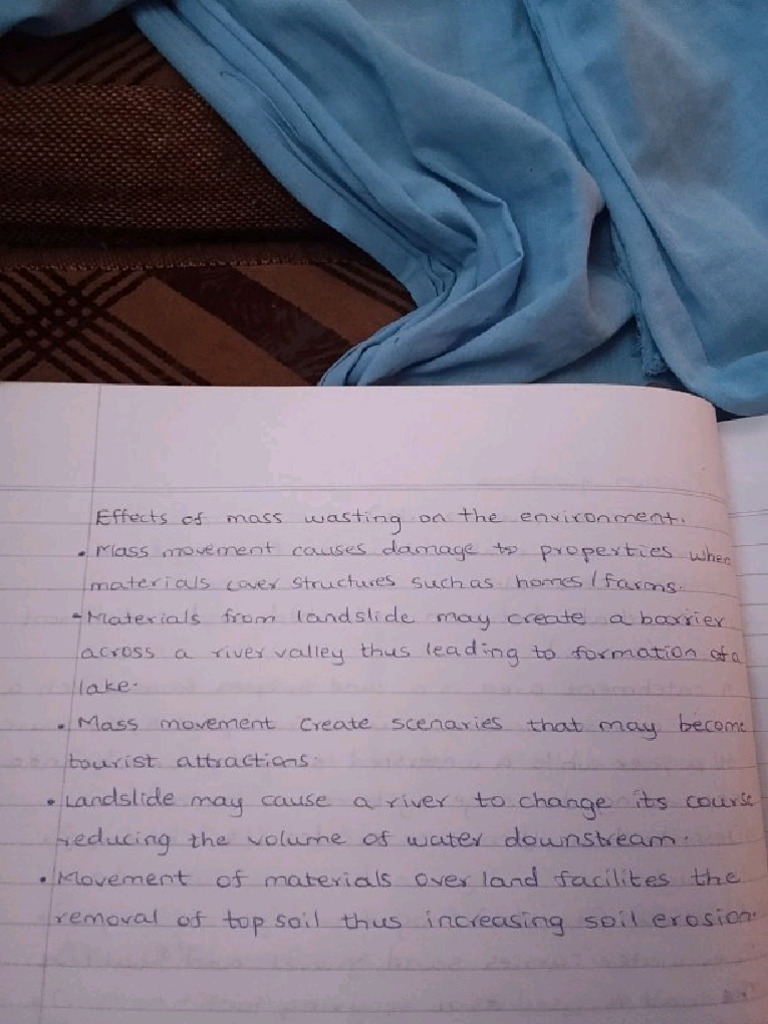 Effects of mass wasting on the environment.
• Mass movement causes damage to properties when
materials cover structures such as homes/farms.
- Materials from landslide may create a barrier
across a river valley thus leading to formation of a
lake.
• Mass movement create scenaries that may become
tourist attractions.
• Landslide may cause a river to change its course
reducing the volume of water downstream.
• Movement of materials over land facilites the
removal of top soil thus increasing soil erosion.